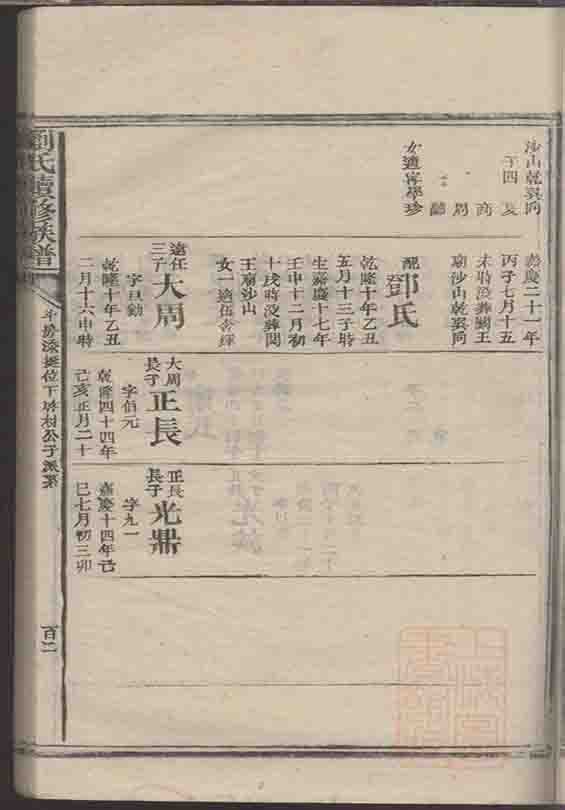 沙山乾巽向
子四
夏
商
周
女適寗學珍
嘉慶二十一年
丙子七月十五
未時没葬關王
廟沙山乾巽向
配鄧氏
乾隆十年乙丑
五月十三子時
生嘉慶十七年
壬申十二月初
十戌時没葬関
王廟沙山
女一適伍
遠任三子大周
字旦勳
乾隆十年乙丑
二月十六申時
大周長子正長
字伯元
乾隆四十四年
己亥正月二十
正長長子光鼎
字九一
嘉慶十四年己
巳七月初三卯
劉氏續修族譜
百二